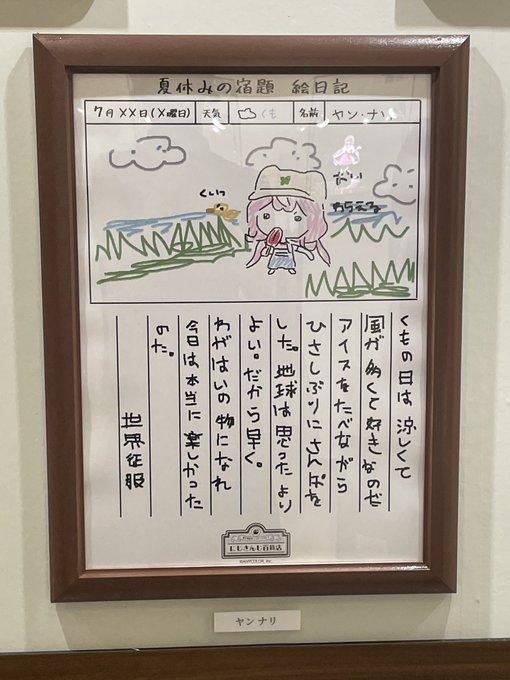 夏休みの宿題 絵日記
7月××日(×曜日) 天気 くも 名前 ヤン・ナリ
くいっ
くもの日は涼しくて
風が多くて好きなのだ
アイスをたべながら
ひさしぶりにさんぽを
した。地球は思ったより
よい。だから早く。
わがはいの物になれ
今日は本当に楽しかった
のだ。
世界征服
にじさんじ百貨店
©ANYCOLOR, Inc.
ヤン ナリ